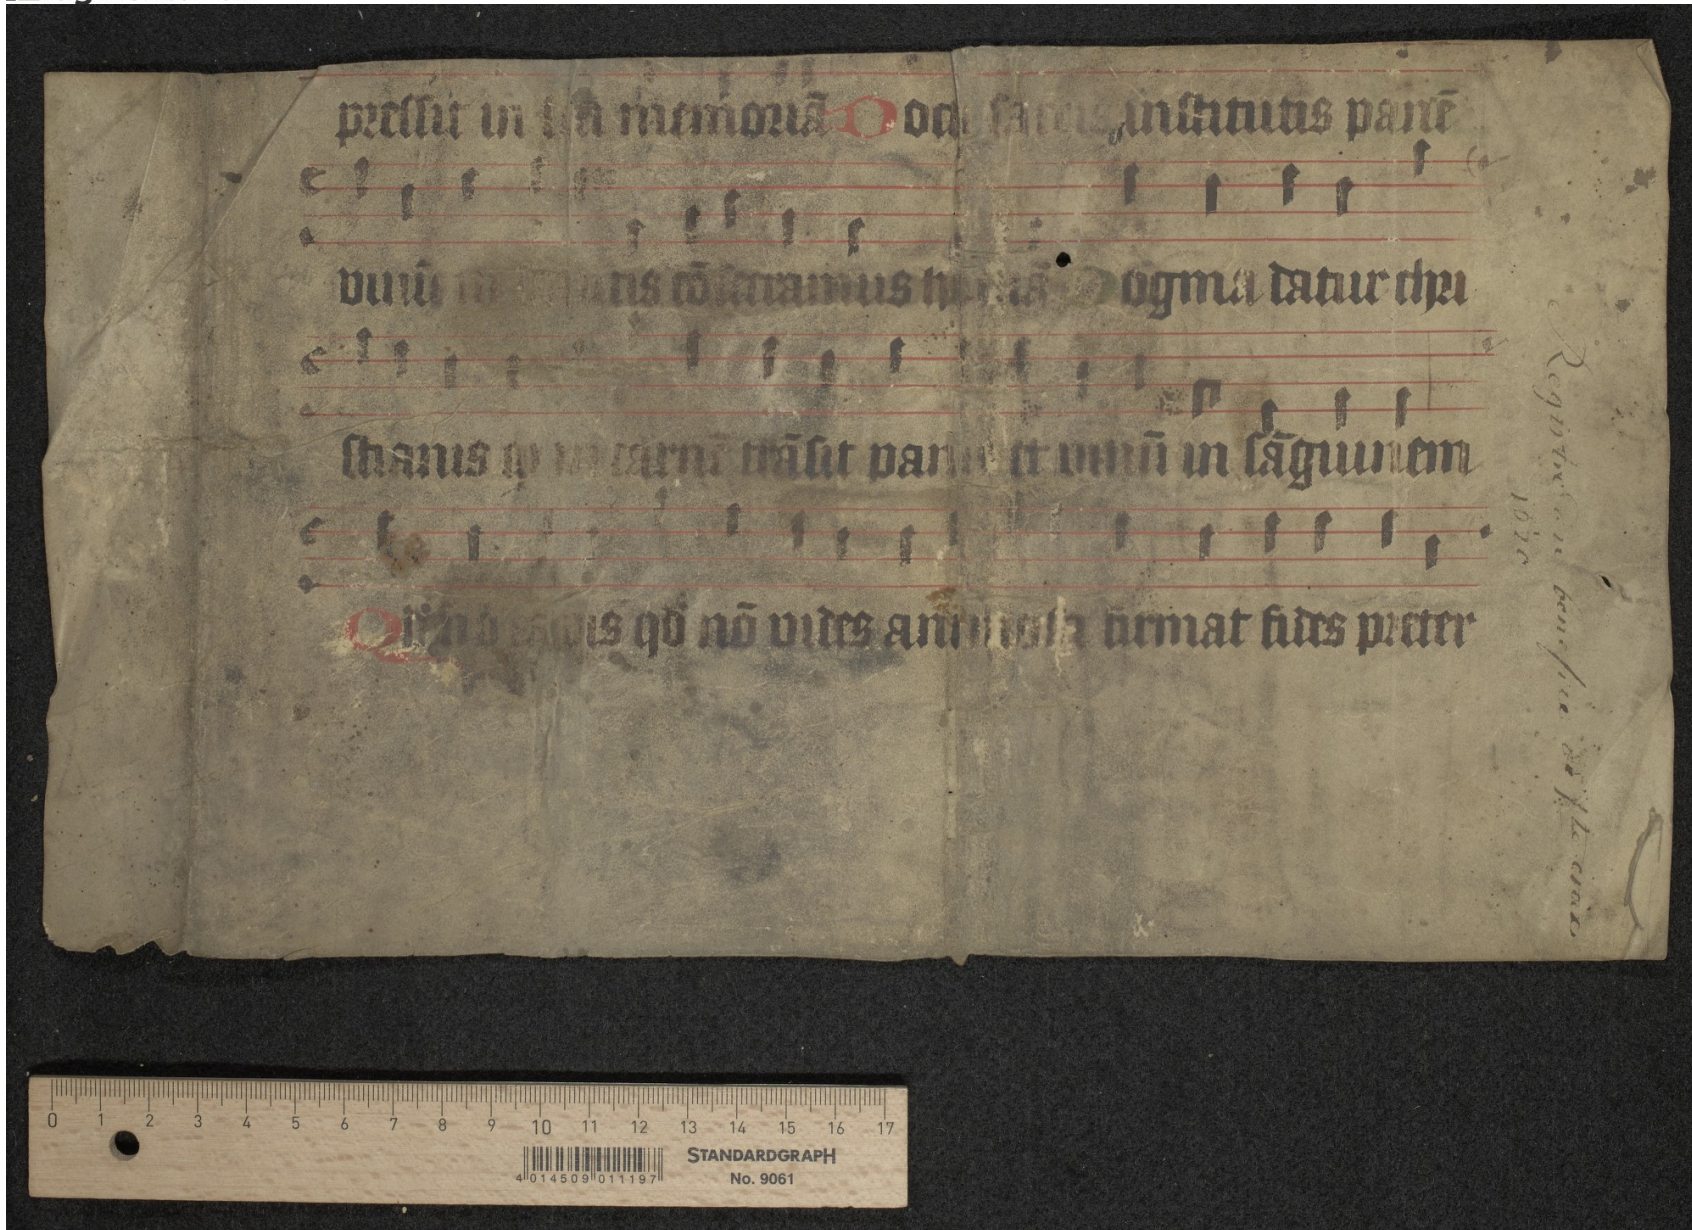 pressit in sui memoriã Docti sacris institutis panẽ
vinũ in salutis cõsecramus hostiã Dogma datur chri
stianis in carnẽ trãsit panis et vinũ in sãguinem
Quod nõ capis qđ nõ vides animosa firmat fides preter
Register
1620
0 1 2 3 4 5 6 7 8 9 10 11 12 13 14 15 16 17
4 014509 011197
STANDARDGRAPH
No. 9061